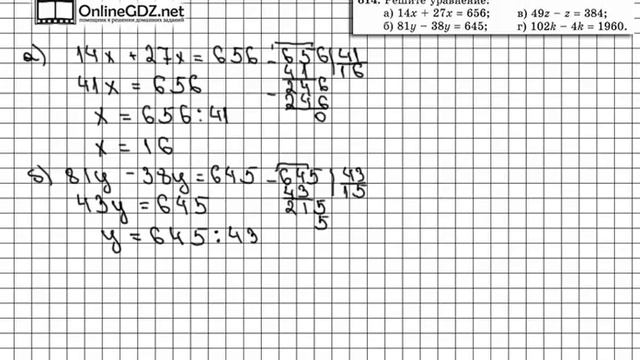 OnlineGDZ.net
помощник в решении домашних заданий
614. Решите уравнение:
а) 14x + 27x = 656; в) 49z − z = 384;
б) 81y − 38y = 645; г) 102k − 4k = 1960.
а) 14x + 27x = 656 − 656 | 41
41 16
41x = 656 246
− 246
x = 656 : 41 0
x = 16
б) 81y − 38y = 645 − 645 | 43
43 15
43y = 645 215
5
y = 645 : 43